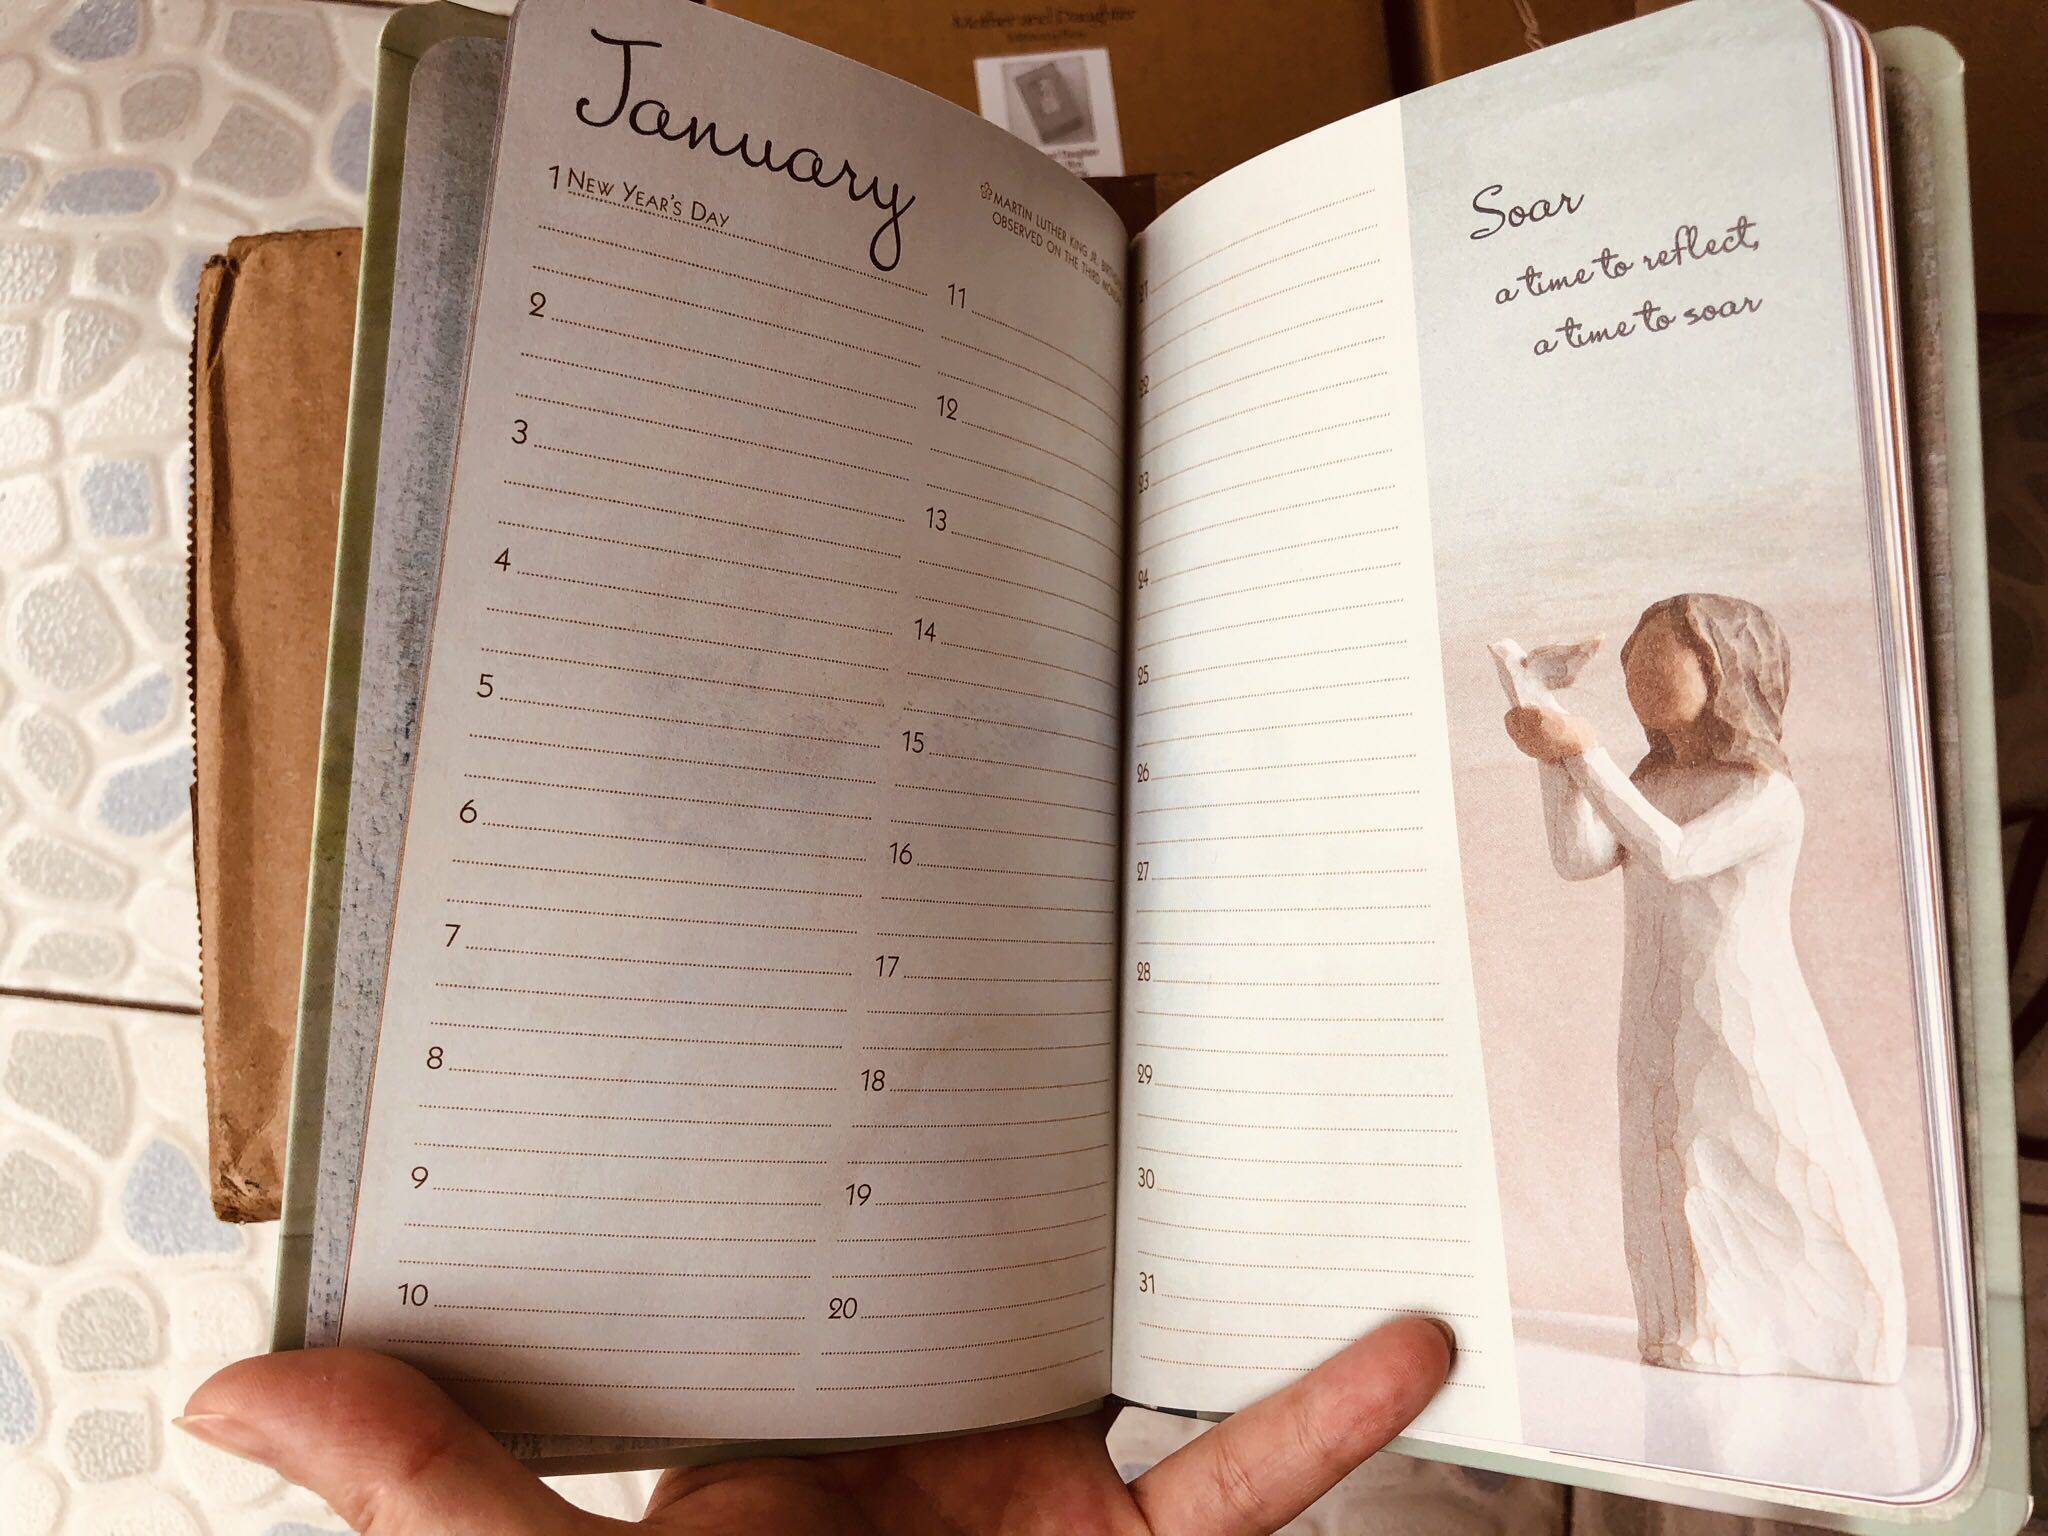 Mother and Daughter
January
1 NEW YEAR'S DAY
2
3
4
5
6
7
8
9
10
MARTIN LUTHER KING JR.
OBSERVED ON THE THIRD
11
12
13
14
15
16
17
18
19
20
23
24
25
26
27
28
29
30
31
Soar
a time to reflect,
a time to soar